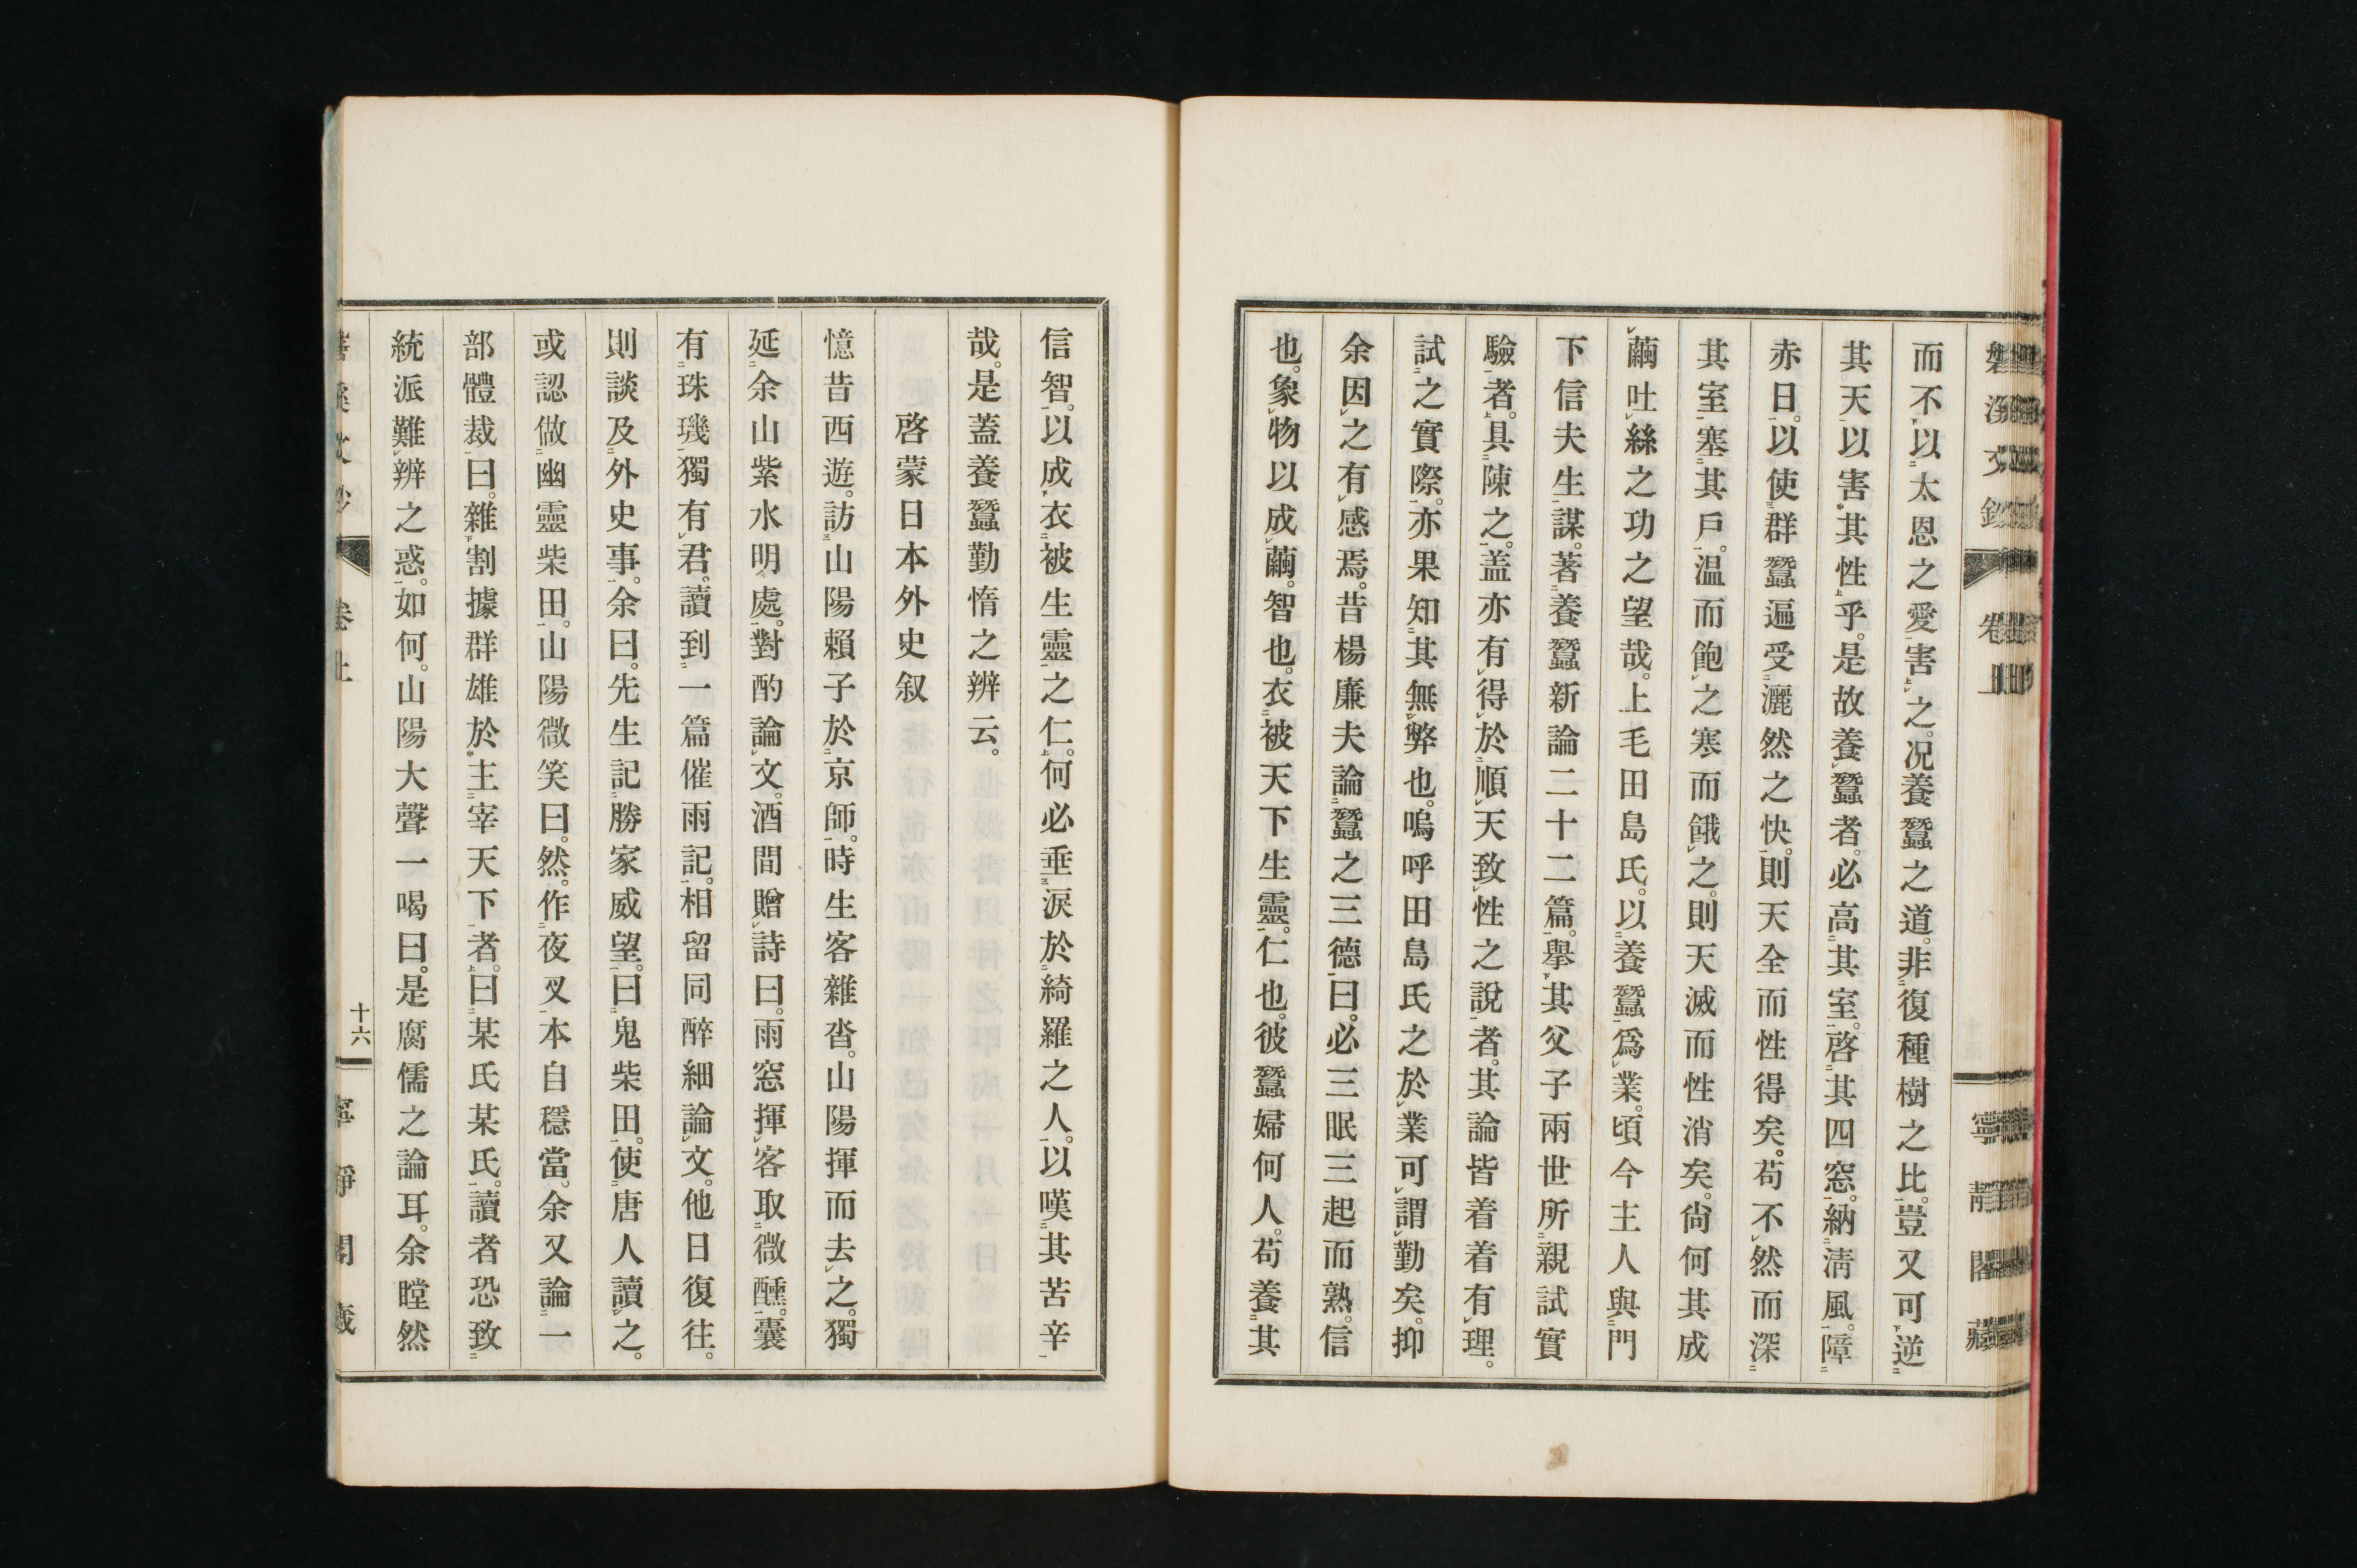 而不以太恩之愛害之。况養蠶之道。非復種樹之比。豈又可逆
其天以害其性乎。是故養蠶者。必高其室。啓其四窓。納清風。障
赤日。以使群蠶遍受灑然之快。則天全而性得矣。苟不然而深
其室塞其戶。温而飽之寒而餓之。則天滅而性消矣。尙何其成
繭吐絲之功之望哉。上毛田島氏。以養蠶爲業。頃今主人與門
下信夫生謀。著養蠶新論二十二篇。擧其父子兩世所親試實
驗者。具陳之。盖亦有得於順天致性之說者。其論皆着着有理。
試之實際。亦果知其無弊也。嗚呼田島氏之於業可謂勤矣。抑
余因之有感焉。昔楊廉夫論蠶之三德曰。必三眠三起而熟。信
也。象物以成繭。智也。衣被天下生靈。仁也。彼蠶婦何人。苟養其
信智。以成衣被生靈之仁。何必垂淚於綺羅之人。以嘆其苦辛
哉。是蓋養蠶勤惰之辨云。
啓蒙日本外史叙
憶昔西遊。訪山陽賴子於京師。時生客雜沓。山陽揮而去之。獨
延余山紫水明處。對酌論文。酒間贈詩曰。雨窓揮客取微醺。囊
有珠璣獨有君。讀到一篇催雨記。相留同醉細論文。他日復往。
則談及外史事。余曰。先生記勝家威望。曰鬼柴田。使唐人讀之。
或認做幽靈柴田。山陽微笑曰。然。作夜叉本自穩當。余又論一
部體裁曰。雜割據群雄於主宰天下者。曰某氏某氏。讀者恐致
統派難辨之惑。如何。山陽大聲一喝曰。是腐儒之論耳。余瞠然
卷上
十六